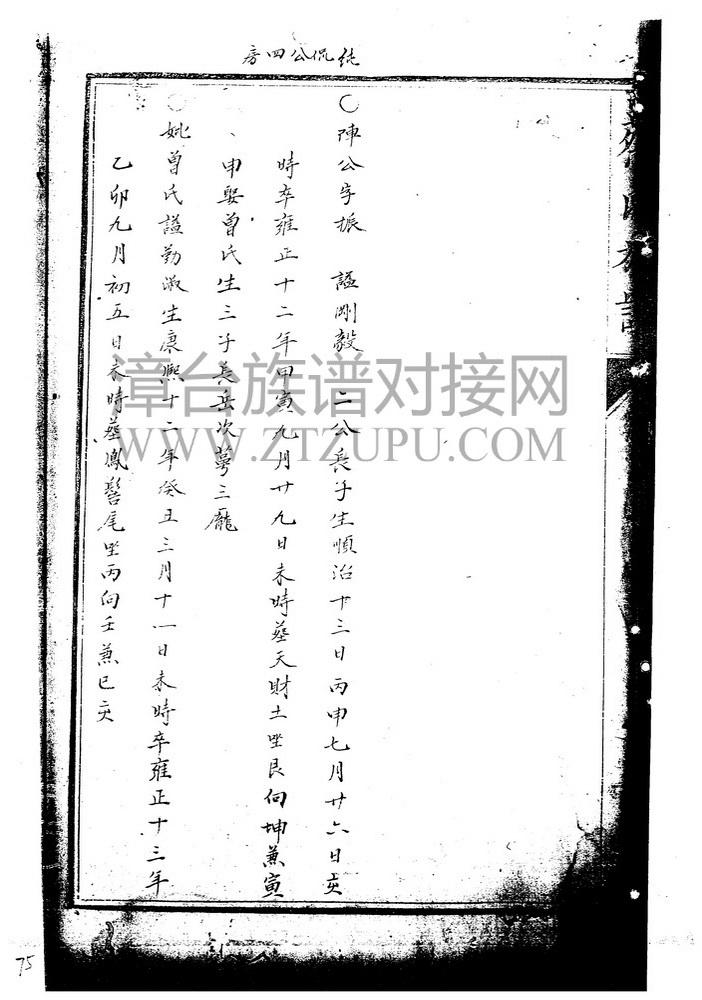 純侃公四房
○陣公字振 諡剛毅 二公長子生順治十三日丙申七月廿六日亥
時卒雍正十二年甲寅九月廿九日未時葬天財土坐艮向坤兼寅
、申娶曾氏生三子長岳次萼三龐
○妣曾氏諡勤淑生康熙十二年癸丑三月十一日未時卒雍正十三年
乙卯九月初五日未時葬鳳髻尾坐丙向壬兼巳亥
75
漳台族谱对接网
WWW.ZTZUPU.COM